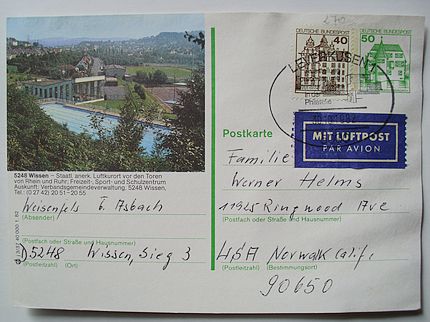 40
DEUTSCHE BUNDESPOST
50
DEUTSCHE BUNDESPOST
LEVERKUSEN 1
MIT LUFTPOST
PAR AVION
5248 Wissen – Staatl. anerk. Luftkurort vor den Toren
von Rhein und Ruhr; Freizeit-, Sport- und Schulzentrum
Auskunft: Verbandsgemeindeverwaltung, 5248 Wissen,
Tel.: (0 27 42) 20 51 – 20 55
Weisenfels b. Asbach
(Absender)
(Postfach oder Straße und Hausnummer)
D 5248 Wissen, Sieg 3
(Postleitzahl) (Ort)
Postkarte
Familie
Werner Helms
11925 Ringwood Ave
(Postfach oder Straße und Hausnummer)
USA Norwalk Calif.
(Postleitzahl) (Bestimmungsort)
90650